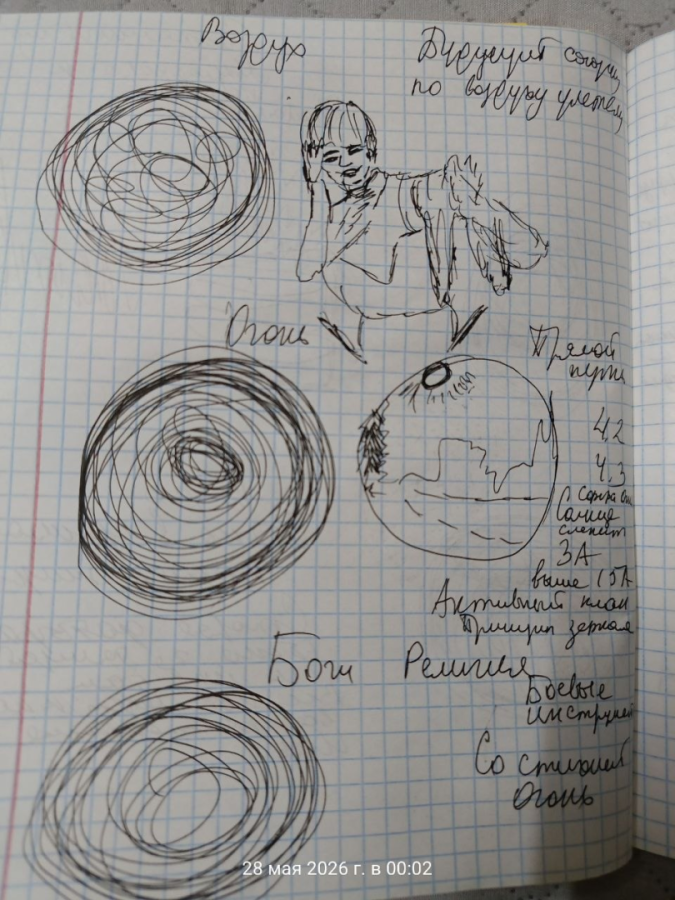 Воздух
Будущит
по воздуху улетели
Огонь
Прямой
4,2
4,3
Солнце
слепит
3А
выше 15А
Активный клан
Принцип зеркала
Боги Религия
Боевые
инструмент
Со стихией
Огонь
28 мая 2026 г. в 00:02